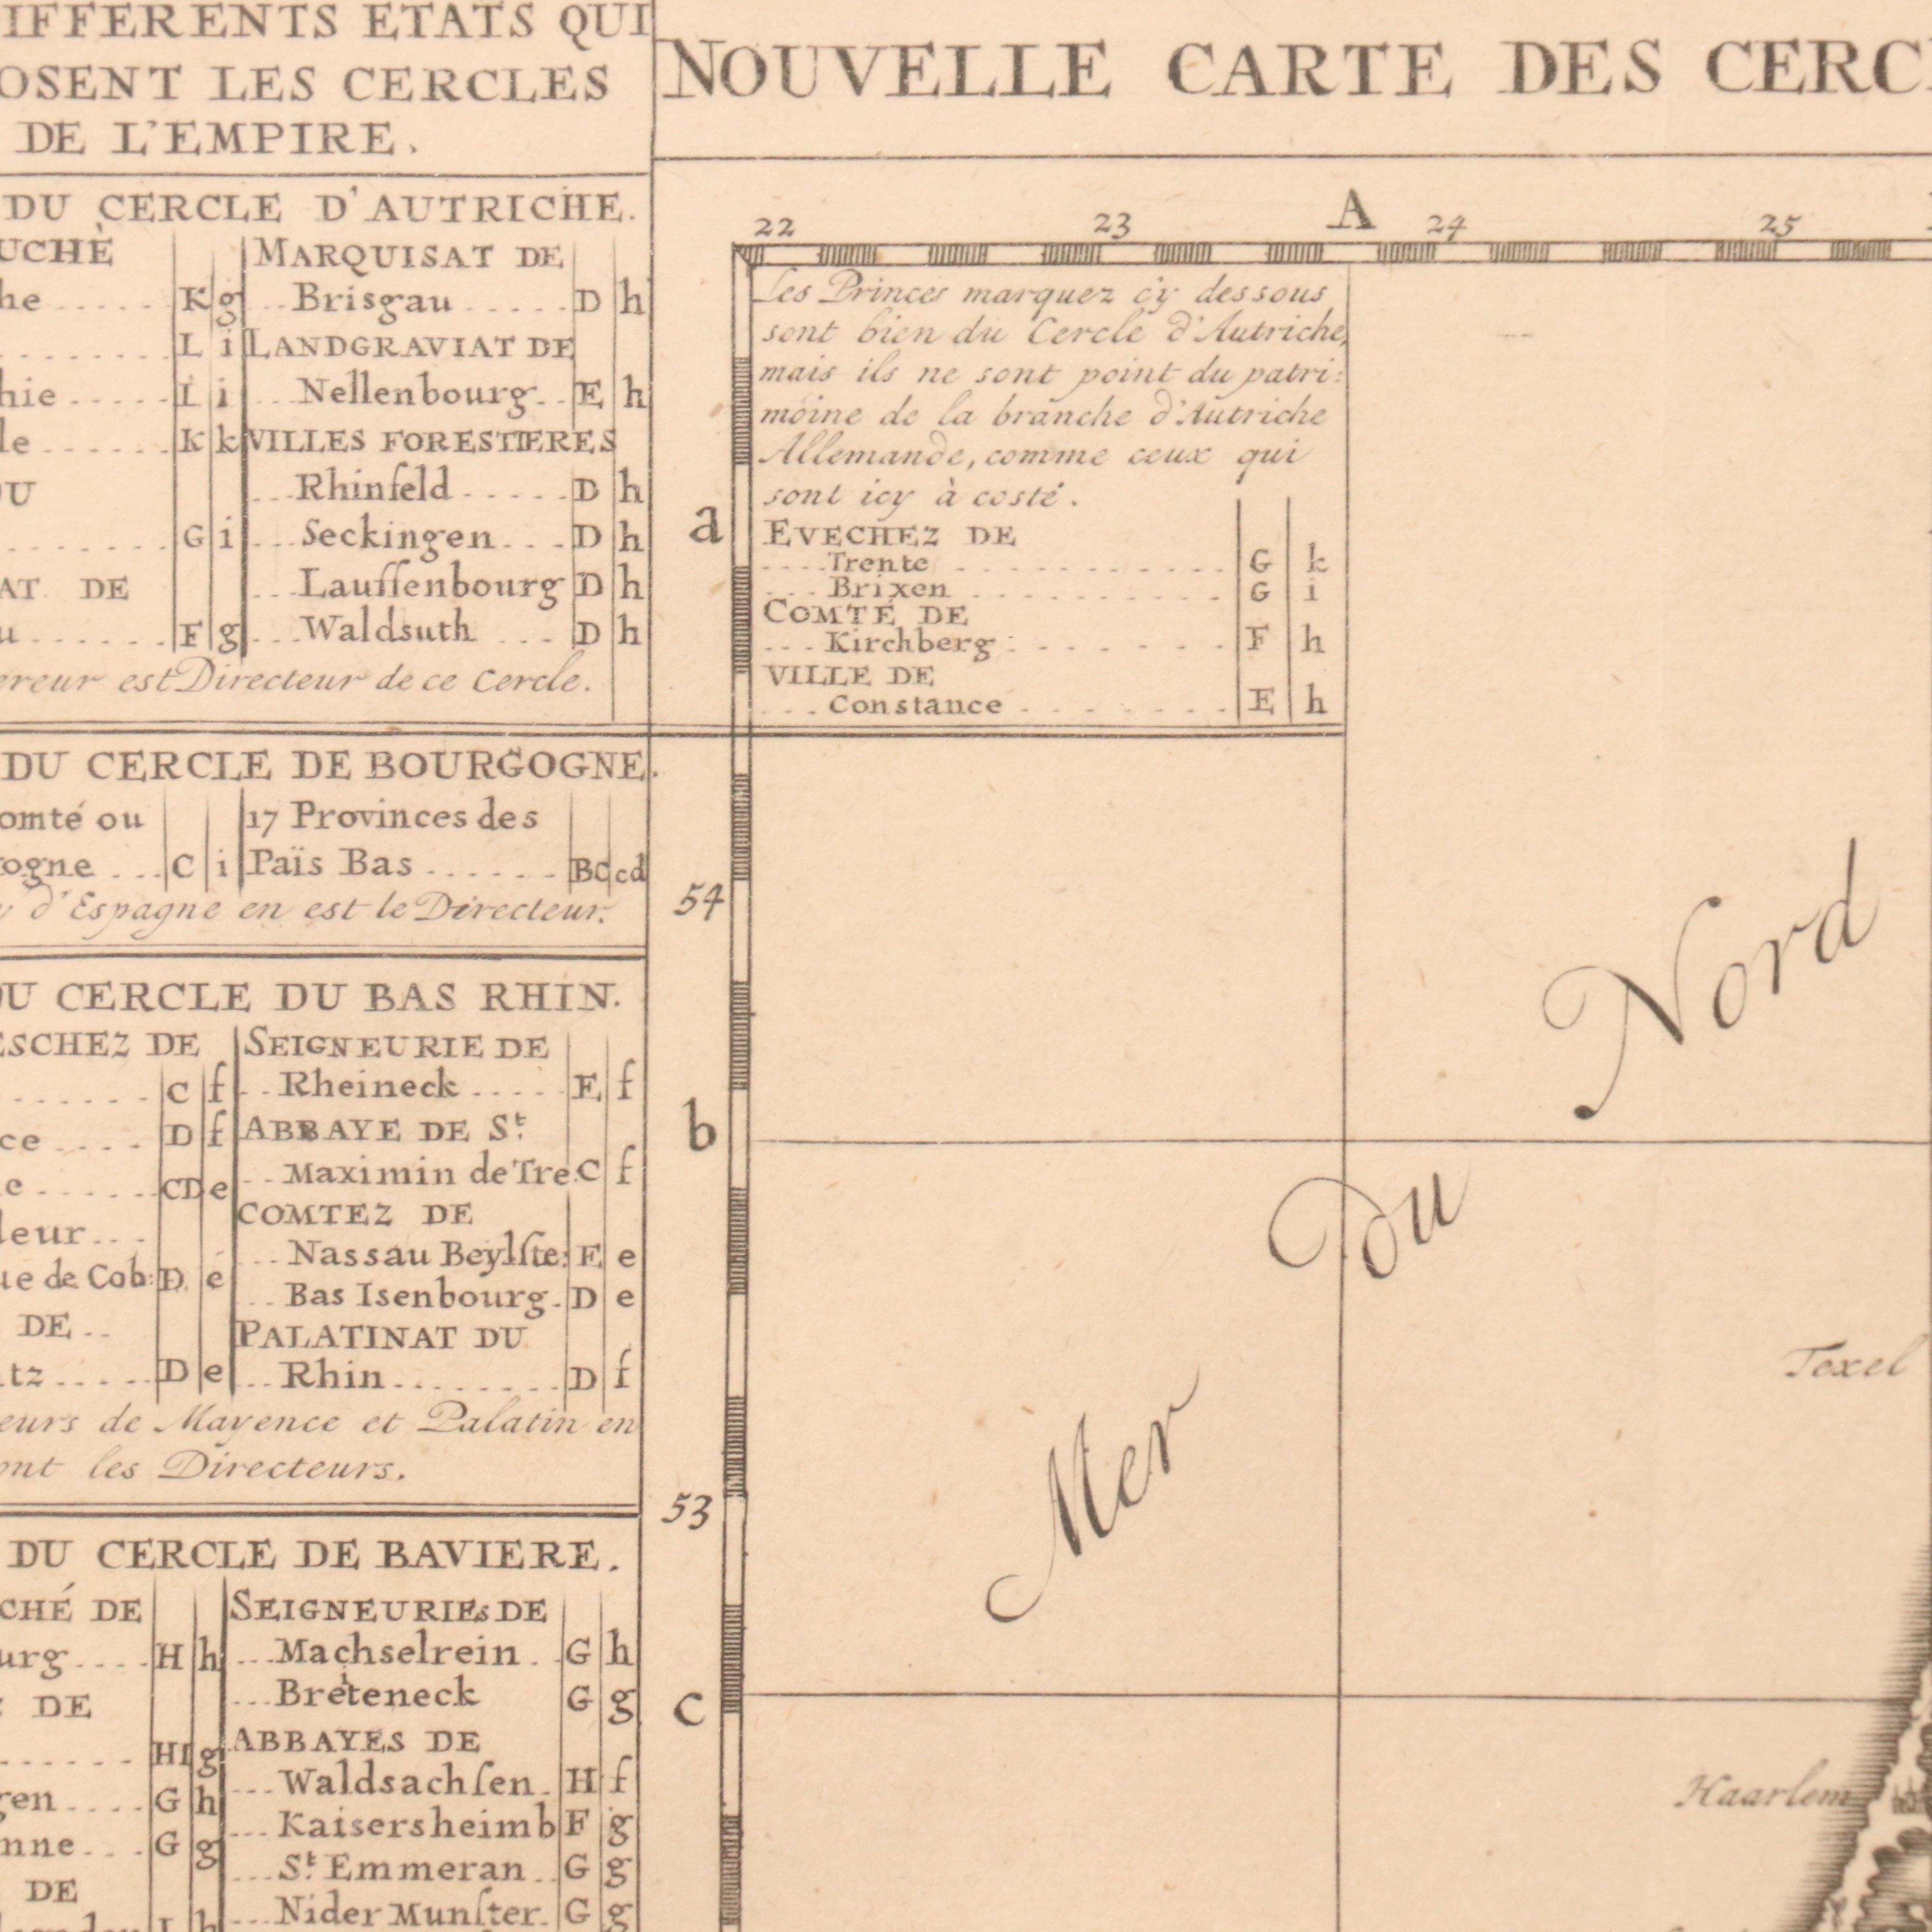 IFFERENTS ETATS QUI
OSENT LES CERCLES
DE L'EMPIRE.
DU CERCLE D'AUTRICHE.
UCHÈ
he ..... K g
........ L i
hie ..... L i
le ...... K k
OU
........ G i
AT DE
u ...... F g
MARQUISAT DE
Brisgau ..... D h
LANDGRAVIAT DE
Nellenbourg .. E h
VILLES FORESTIERES
Rhinfeld ..... D h
Seckingen ... D h
Lauſſenbourg D h
Waldsuth ... D h
ereur est Directeur de ce Cercle.
DU CERCLE DE BOURGOGNE.
omté ou
rogne ... C i
17 Provinces des
Païs Bas ...... BC cd
d'Espagne en est le Directeur.
U CERCLE DU BAS RHIN.
ESCHEZ DE
....... C f
ce .... D f
e ...... CD e
leur ...
ue de Cob: D e
DE ..
tz ..... D e
SEIGNEURIE DE
Rheineck .... E f
ABBAYE DE St.
Maximin de Tre. C f
COMTEZ DE
Nassau Beylſte: E e
Bas Isenbourg . D e
PALATINAT DU
Rhin ........ D f
eurs de Mayence et Palatin en
ont les Directeurs.
DU CERCLE DE BAVIERE.
CHÉ DE
urg .... H h
DE
...... HI g
gen .... G h
nne ... G g
DE
I h
SEIGNEURIEs DE
Machselrein .. G h
Breteneck G g
ABBAYES DE
Waldsachſen . H f
Kaisersheimb F g
St. Emmeran .. G g
Nider Munſter . G g
NOUVELLE CARTE DES CERC
A
22 23 24 25
Les Princes marquez cy dessous
sont bien du Cercle d'Autriche,
mais ils ne sont point du patri:
moine de la branche d'Autriche
Allemande, comme ceux qui
sont icy à costé.
EVECHEZ DE
Trente ........... G k
Brixen .......... G i
COMTÉ DE
Kirchberg : ....... F h
VILLE DE
Constance ....... E h
a
54
b
53
c
Mer Du Nord
Texel
Haarlem